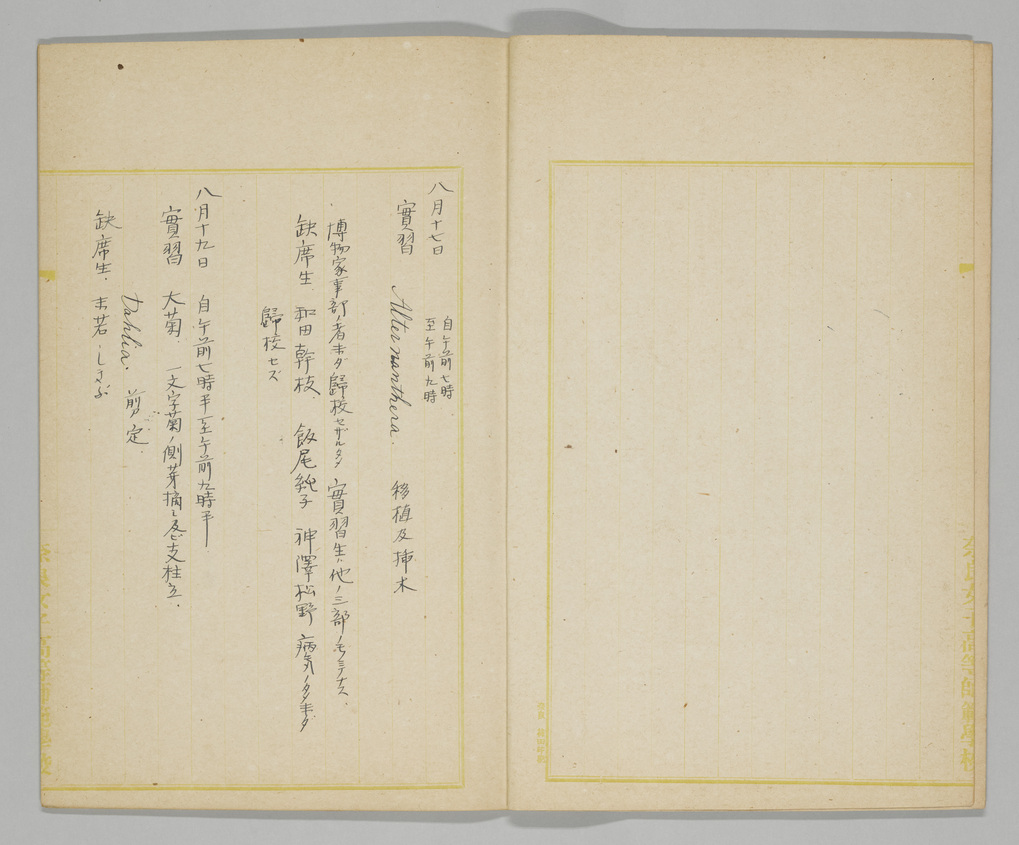 八月十七日
自午前七時
至午前九時
實習 Alternanthera. 移植及挿木
博物家事部ノ者未ダ歸校セザルタメ實習生ハ他ノ三部ノモノミナス.
缺席生. 和田幹枝. 飯尾純子 神澤松野 病気ノタメ未ダ
歸校セズ
八月十九日 自午前七時半至午前九時半
實習 大菊. 一文字菊ノ側芽摘ミ及ビ支柱立.
Dahlia. 剪定.
缺席生. 末若
奈良女子高等師範學校
奈良女子高等師範學校